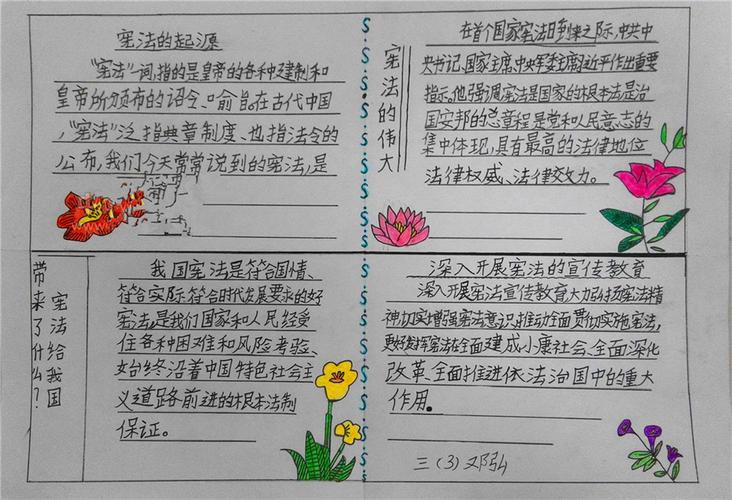 宪法的起源
"宪法"一词,指的是皇帝的各种建制和
皇帝所颁布的诏令、口喻旨。在古代中国
,"宪法"泛指典章制度、也指法令的
公布,我们今天常常说到的宪法,是
宪法的伟大
在首个国家宪法日到来之际,中共中
央书记、国家主席、中央军委主席习近平作出重要
指示。他强调宪法是国家的根本法是治
国安邦的总章程是党和人民意志的
集中体现,具有最高的法律地位
法律权威、法律效力。
宪法给我国
带来了什么?
我国宪法是符合国情、
符合实际、符合时代发展要求的好
宪法,是我们国家和人民经受
住各种困难和风险考验、
始终沿着中国特色社会主
义道路前进的根本法制
保证。
深入开展宪法的宣传教育
深入开展宪法宣传教育大力弘扬宪法精
神切实增强宪法意识,推动全面贯彻实施宪法,
更好发挥宪法在全面建成小康社会、全面深化
改革、全面推进依法治国中的重大
作用。
三(3)邓弘